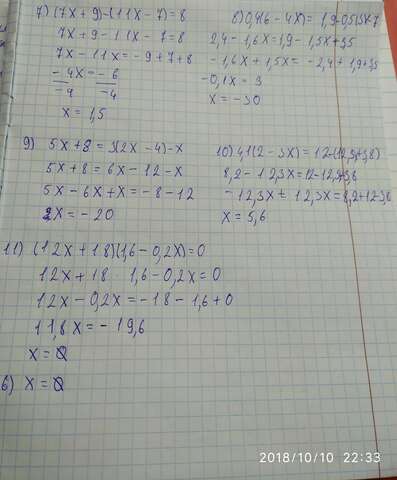 7) (7x + 9) - (11x - 7) = 8
7x + 9 - 11x - 7 = 8
7x - 11x = -9 + 7 + 8
-4x = -6
-4 -4
x = 1,5
8) 0,4(6 - 4x) = 1,9-0,5(3x-7
2,4 - 1,6x = 1,9 - 1,5x + 3,5
-1,6x + 1,5x = -2,4 + 1,9 + 3,5
-0,1x = 3
x = -30
9) 5x + 8 = 3(2x - 4) - x
5x + 8 = 6x - 12 - x
5x - 6x + x = -8 - 12
2x = -20
10) 4,1(2 - 3x) = 12-(12,3x+3,8)
x = 5,6
11) (12x + 18)(1,6 - 0,2x) = 0
12x + 18 · 1,6 - 0,2x = 0
12x - 0,2x = -18 - 1,6 + 0
11,8x = -19,6
x = 0
6) x = 0
2018/10/10 22:33